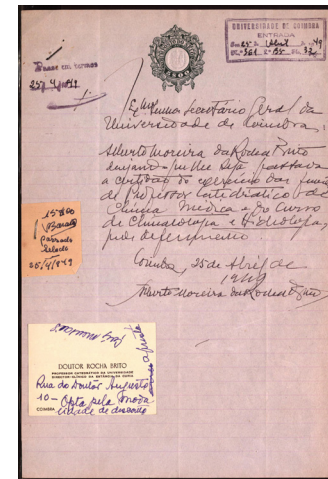 UNIVERSIDADE DE COIMBRA
ENTRADA
Em 25 de Abril de 1949
Passe em termos
25/4/949
Exmo Senhor Secretário Geral da
Universidade de Coimbra.
Alberto Moreira da Rocha Brito
desejando que lhe seja passada
a certidão do exercício das funções
de Professor Catedrático de
Clínica Médica e do Curso
de Climatologia e Hidrologia,
pede deferimento.
Coimbra, 25 de Abril de
1949
Alberto Moreira da Rocha Brito
15$00
Passado
Selado
25/4/949
DOUTOR ROCHA BRITO
PROFESSOR CATEDRÁTICO DA UNIVERSIDADE
DIRECTOR-CLÍNICO DA ESTÂNCIA DA CURIA
Rua do Doutor Augusto
10 – Opta pela
COIMBRA